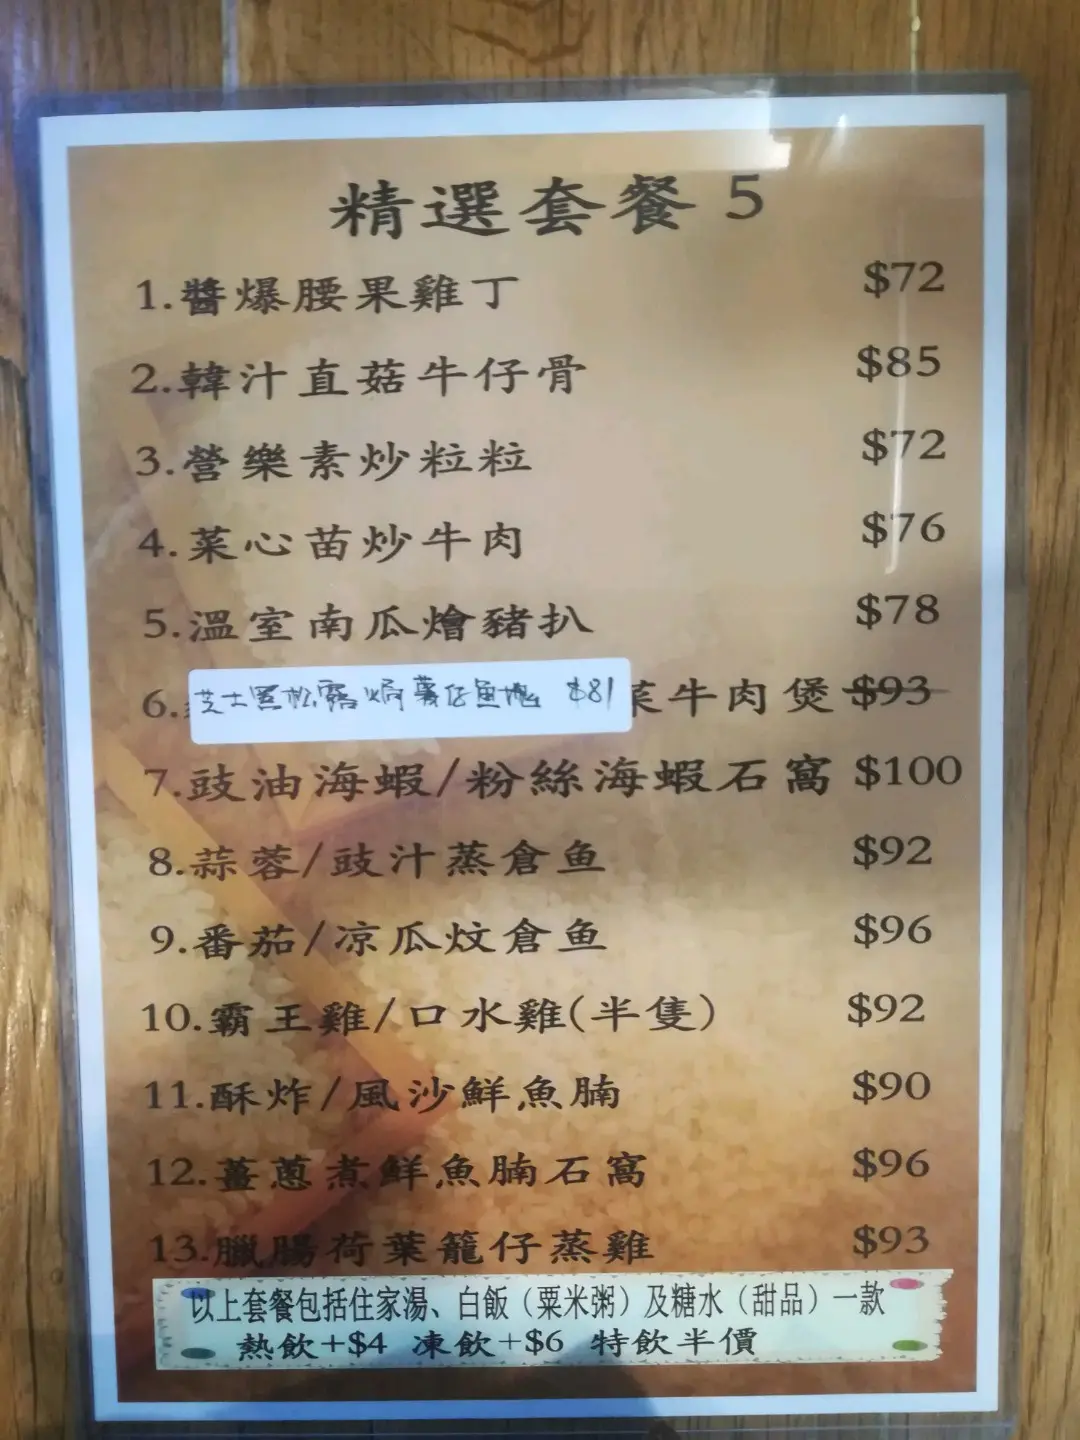 精選套餐 5
1.醬爆腰果雞丁 $72
2.韓汁直菇牛仔骨 $85
3.營樂素炒粒粒 $72
4.菜心苗炒牛肉 $76
5.溫室南瓜燴豬扒 $78
6.芝士黑松露焗薯仔魚塊 $81 菜牛肉煲 $93
7.豉油海蝦/粉絲海蝦石窩 $100
8.蒜蓉/豉汁蒸倉鱼 $92
9.番茄/凉瓜炆倉鱼 $96
10.霸王雞/口水雞(半隻) $92
11.酥炸/風沙鮮魚腩 $90
12.薑蔥煮鮮魚腩石窩 $96
13.臘腸荷葉籠仔蒸雞 $93
以上套餐包括住家湯、白飯（粟米粥）及糖水（甜品）一款
熱飲+$4 凍飲+$6 特飲半價